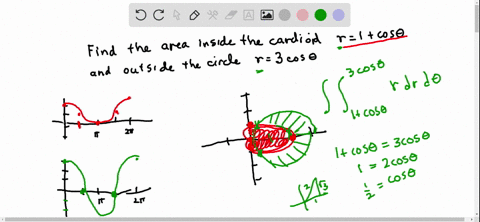 Find the area inside the cardioid r = 1 + cosθ
and outside the circle r = 3 cosθ
∫∫ 3cosθ 1+cosθ r dr dθ
1 + cosθ = 3cosθ
1 = 2cosθ
1/2 = cosθ
π 2π
π 2π
2 √3
1